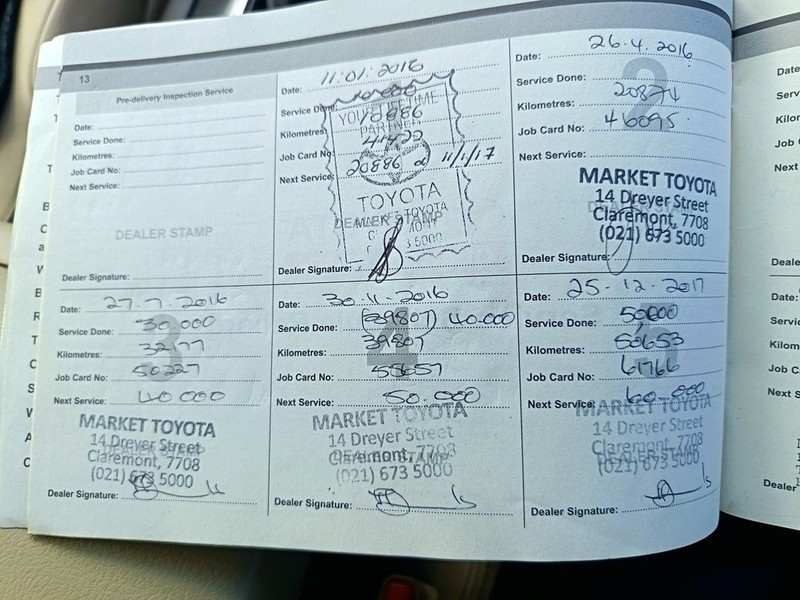 13
Pre-delivery Inspection Service
Date:
Service Done:
Kilometres:
Job Card No:
Next Service:
DEALER STAMP
Dealer Signature:
Date: 11.01.2016
Service Done:
Kilometres: 10886
Job Card No: 41422
Next Service: 20886 11/1/17
TOYOTA
DEALER STAMP
Dealer Signature:
Date: 26.4.2016
Service Done:
Kilometres: 20874
Job Card No: 46095
Next Service:
2
MARKET TOYOTA
14 Dreyer Street
Claremont, 7708
(021) 673 5000
Dealer Signature:
Date: 27.7.2016
Service Done: 30.000
Kilometres:
Job Card No: 50227
Next Service: 40 000
3
MARKET TOYOTA
14 Dreyer Street
Claremont, 7708
(021) 673 5000
Dealer Signature:
Date: 30.11.2016
Service Done: (39807) 40.000
Kilometres: 39807
Job Card No: 55657
Next Service: 50.000
4
MARKET TOYOTA
14 Dreyer Street
Claremont, 7708
(021) 673 5000
Dealer Signature:
Date: 25-12-2017
Service Done: 50000
Kilometres: 50653
Job Card No: 61766
Next Service: 60.000
5
MARKET TOYOTA
14 Dreyer Street
Claremont, 7708
(021) 673 5000
Dealer Signature: